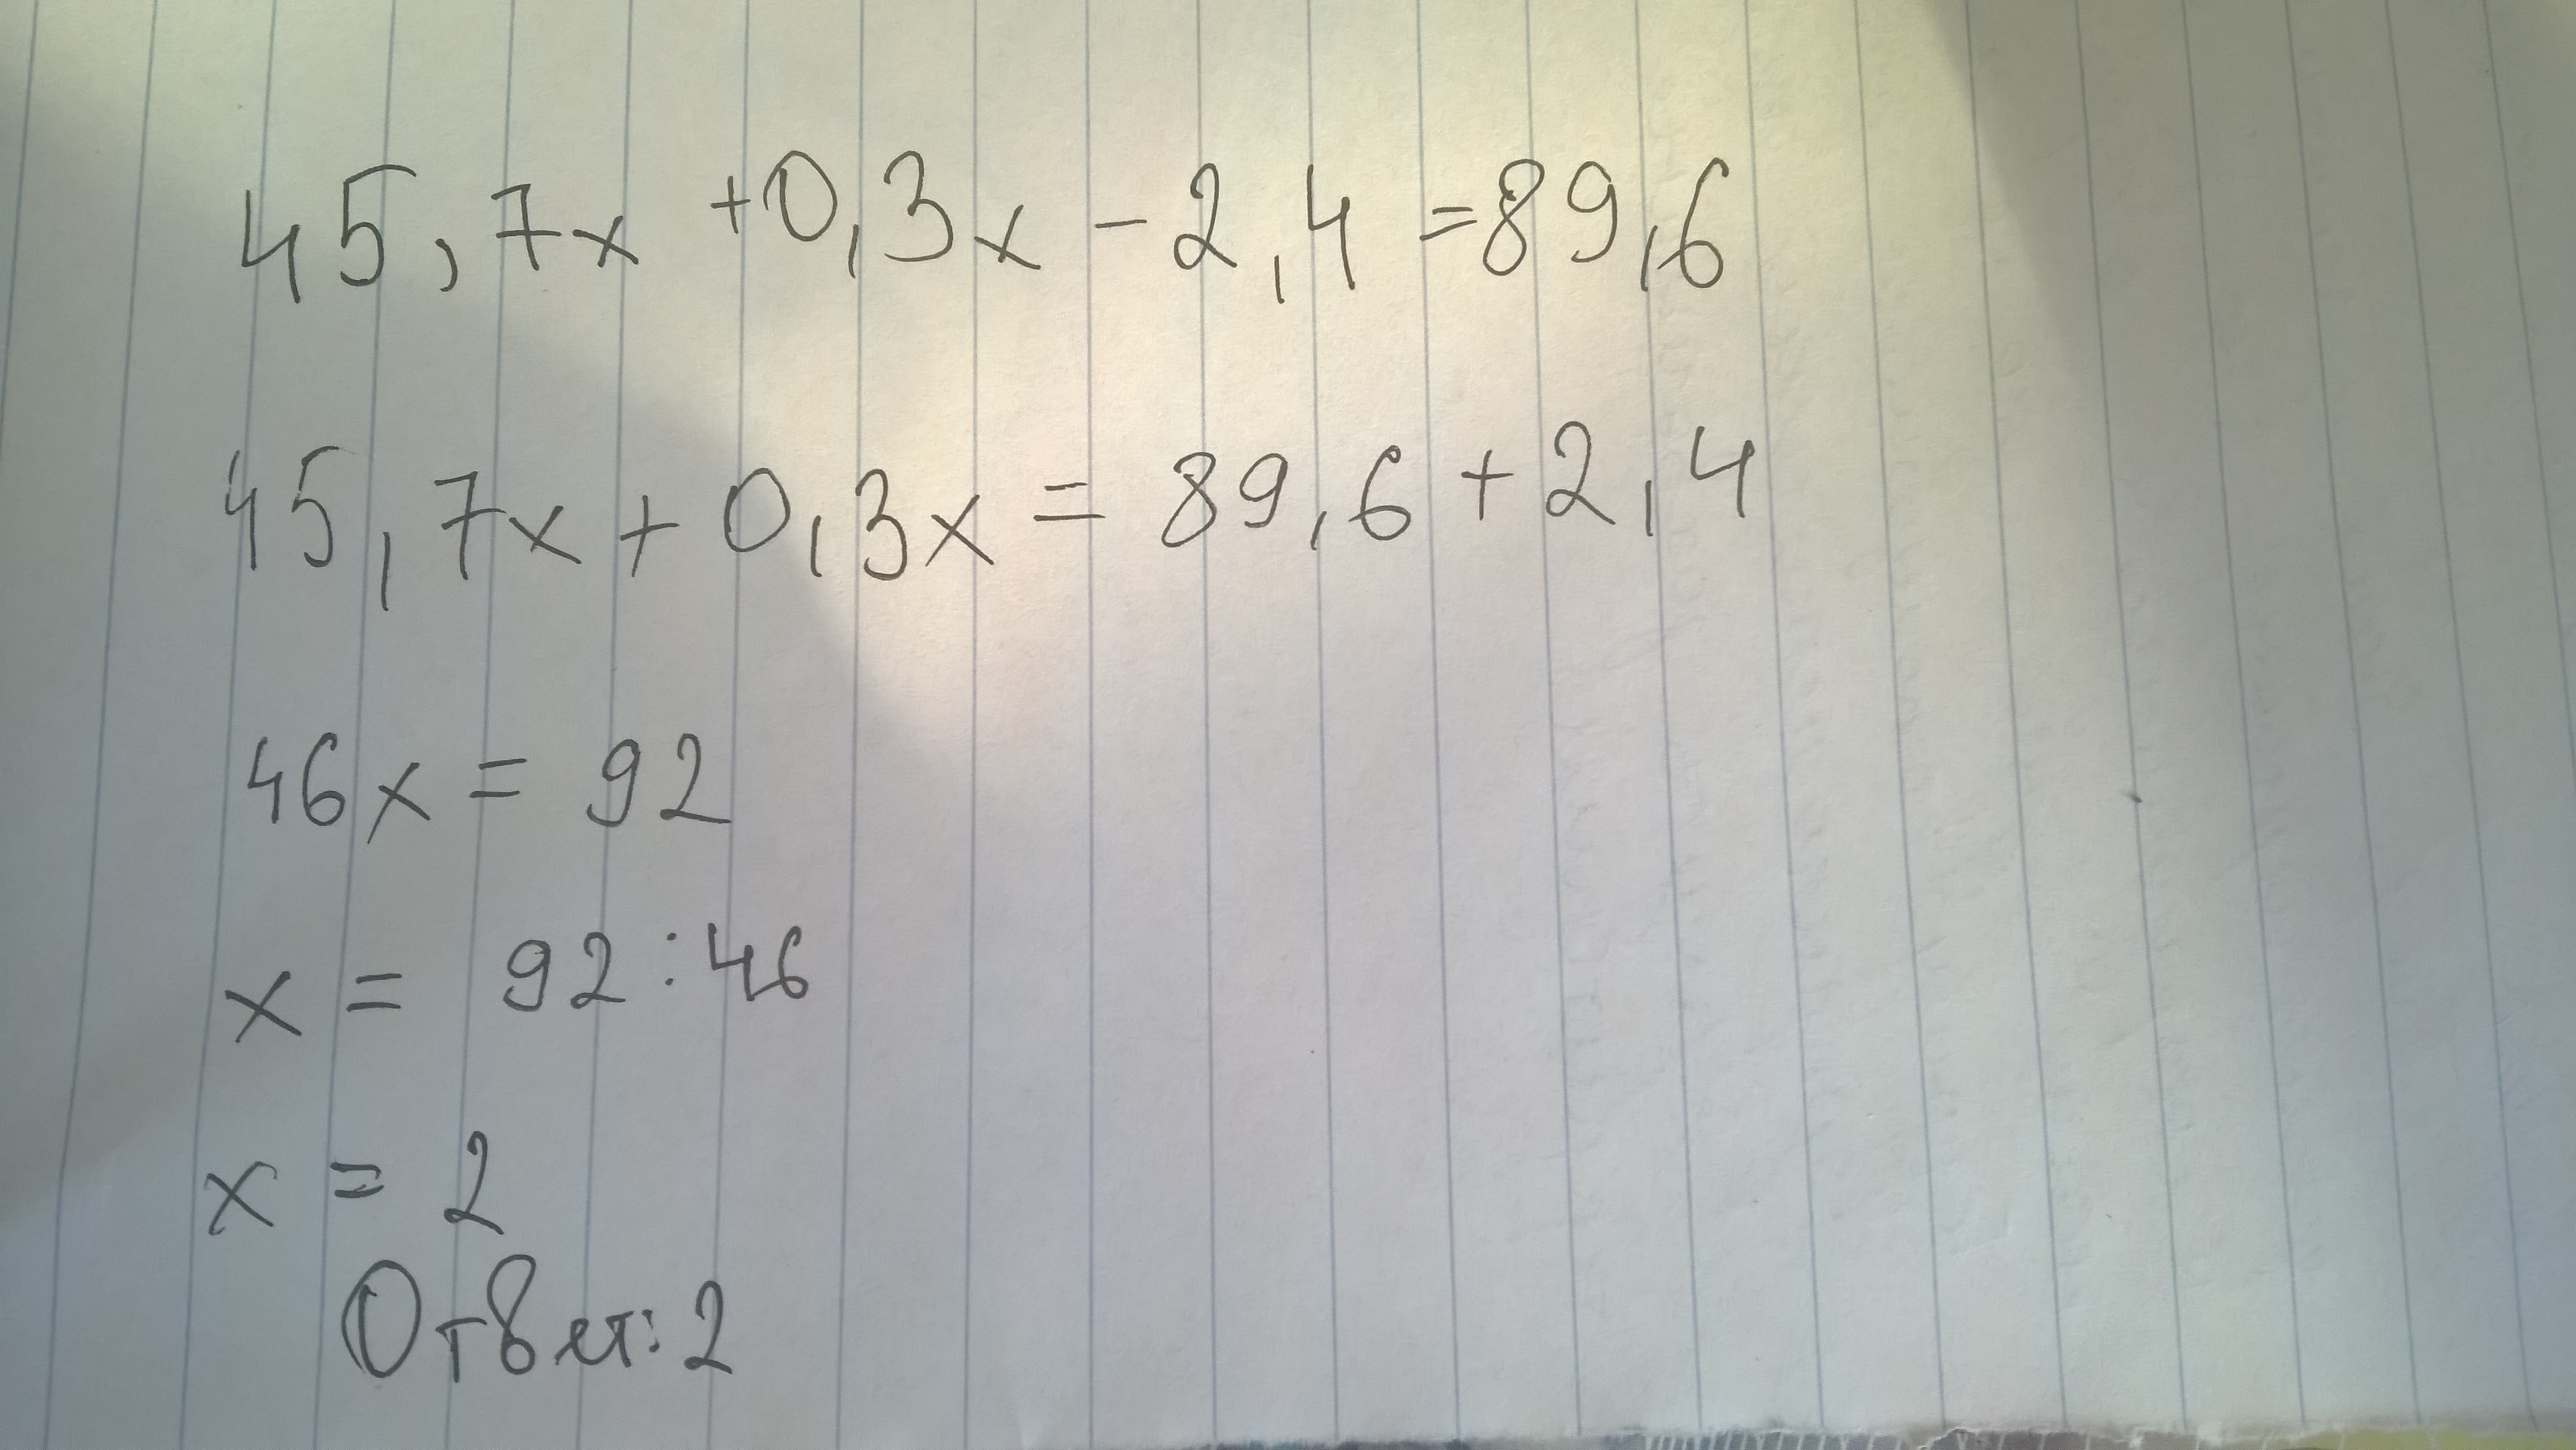 45,7x +0,3x - 2,4 =89,6
45,7x + 0,3x = 89,6 + 2,4
46x = 92
x = 92:46
x = 2
Ответ: 2